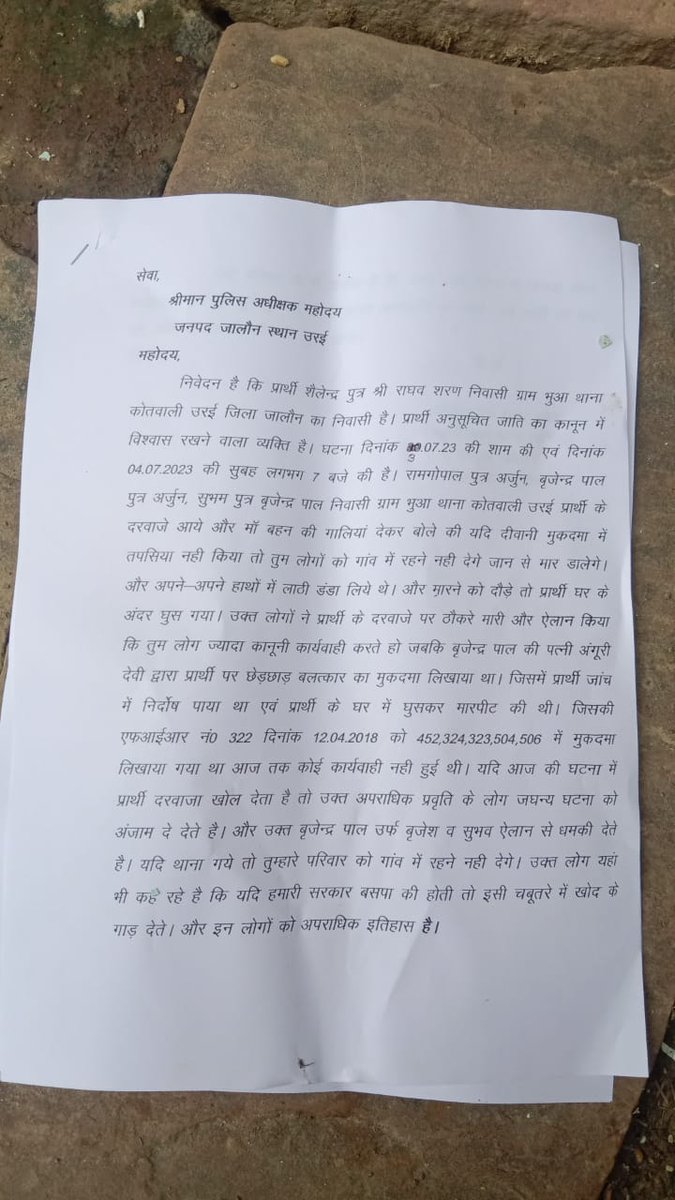 सेवा,
श्रीमान पुलिस अधीक्षक महोदय
जनपद जालौन स्थान उरई
महोदय,
निवेदन है कि प्रार्थी शैलेन्द्र पुत्र श्री राघव शरण निवासी ग्राम भुआ थाना
कोतवाली उरई जिला जालौन का निवासी है। प्रार्थी अनुसूचित जाति का कानून में
विश्वास रखने वाला व्यक्ति है। घटना दिनांक .07.23 की शाम की एवं दिनांक
3
04.07.2023 की सुबह लगभग 7 बजे की है। रामगोपाल पुत्र अर्जुन, बृजेन्द्र पाल
पुत्र अर्जुन, सुभम पुत्र बृजेन्द्र पाल निवासी ग्राम भुआ थाना कोतवाली उरई प्रार्थी के
दरवाजे आये और माँ बहन की गालियां देकर बोले की यदि दीवानी मुकदमा में
तपसिया नही किया तो तुम लोगों को गांव में रहने नही देगे जान से मार डालेगे।
और अपने–अपने हाथों में लाठी डंडा लिये थे। और मारने को दौड़े तो प्रार्थी घर के
अंदर घुस गया। उक्त लोगों ने प्रार्थी के दरवाजे पर ठौकरे मारी और ऐलान किया
कि तुम लोग ज्यादा कानूनी कार्यवाही करते हो जबकि बृजेन्द्र पाल की पत्नी अंगूरी
देवी द्वारा प्रार्थी पर छेड़छाड़ बलत्कार का मुकदमा लिखाया था। जिसमें प्रार्थी जांच
में निर्दोष पाया था एवं प्रार्थी के घर में घुसकर मारपीट की थी। जिसकी
एफआईआर नं0 322 दिनांक 12.04.2018 को 452,324,323,504,506 में मुकदमा
लिखाया गया था आज तक कोई कार्यवाही नही हुई थी। यदि आज की घटना में
प्रार्थी दरवाजा खोल देता है तो उक्त अपराधिक प्रवृति के लोग जघन्य घटना को
अंजाम दे देते है। और उक्त बृजेन्द्र पाल उर्फ बृजेश व सुभव ऐलान से धमकी देते
है। यदि थाना गये तो तुम्हारे परिवार को गांव में रहने नही देगे। उक्त लोग यहां
भी कह रहे है कि यदि हमारी सरकार बसपा की होती तो इसी चबूतरे में खोद के
गाड़ देते। और इन लोगों को अपराधिक इतिहास है।